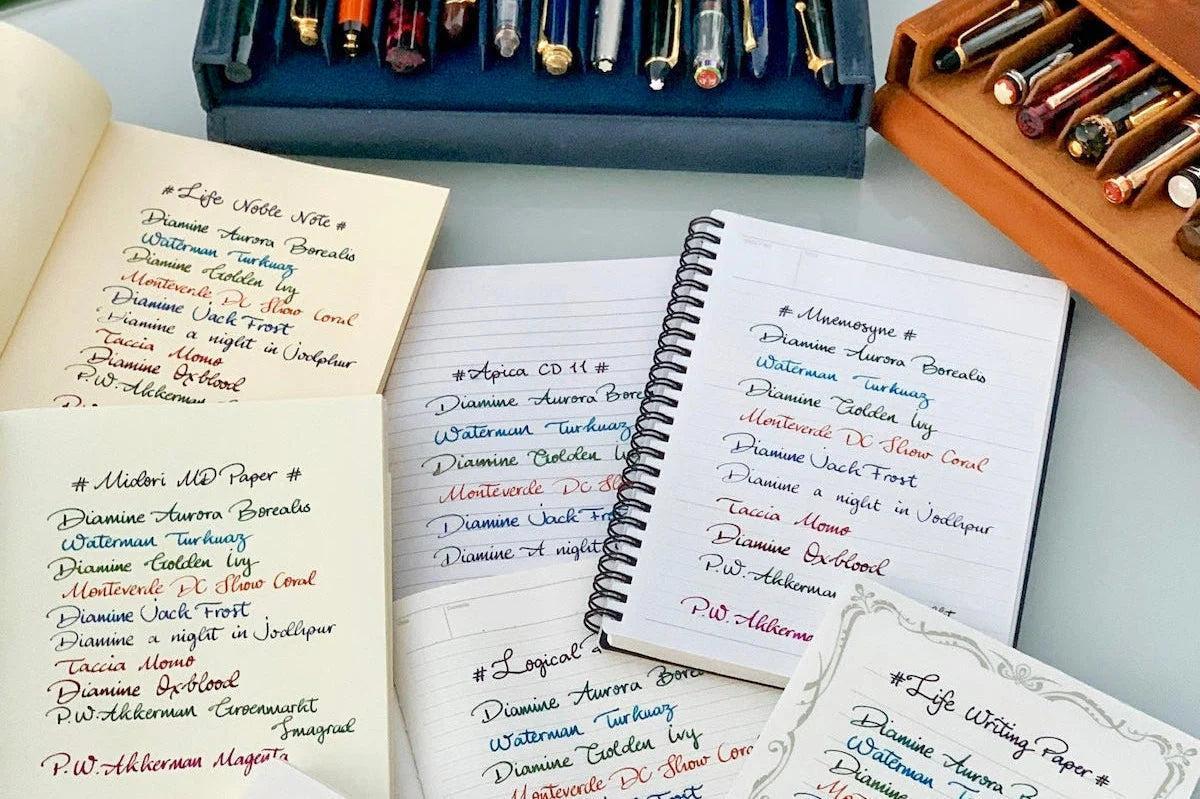 # Life Noble Note #
Diamine Aurora Borealis
Waterman Turkuaz
Diamine Golden Ivy
Monteverde DC Show Coral
Diamine Jack Frost
Diamine a night in Jodhpur
Taccia Momo
Diamine Oxblood
P.W. Akkerman
# Midori MD Paper #
Diamine Aurora Borealis
Waterman Turkuaz
Diamine Golden Ivy
Monteverde DC Show Coral
Diamine Jack Frost
Diamine a night in Jodhpur
Taccia Momo
Diamine Oxblood
P.W. Akkerman Groenmarkt
Smagrad
P.W. Akkerman Magenta
# Apica CD 11 #
Diamine Aurora Bore
Waterman Turkuaz
Diamine Golden
Monteverde DC Sh
Diamine Jack Fro
Diamine A night
# Mnemosyne #
Diamine Aurora Borealis
Waterman Turkuaz
Diamine Golden Ivy
Monteverde DC Show Coral
Diamine Jack Frost
Diamine a night in Jodhpur
Taccia Momo
Diamine Oxblood
P.W. Akkerman
P.W. Akkerma
# Logical a
Diamine Aurora Bore
Waterman Turkuaz
Diamine Golden Ivy
Monteverde DC Show Cora
# Life Writing Paper #
Diamine Aurora B
Waterman T
Diamine
Mo